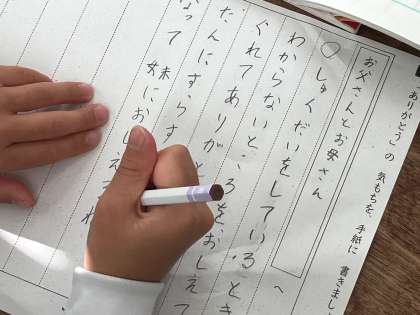 「ありがとう」の 気もちを、手紙に 書きまし
お父さんとお母さん へ
○しゅくだいをしているとき
わからないところをおしえて
くれてありがと
たんにすらす
なって 妹におしえて